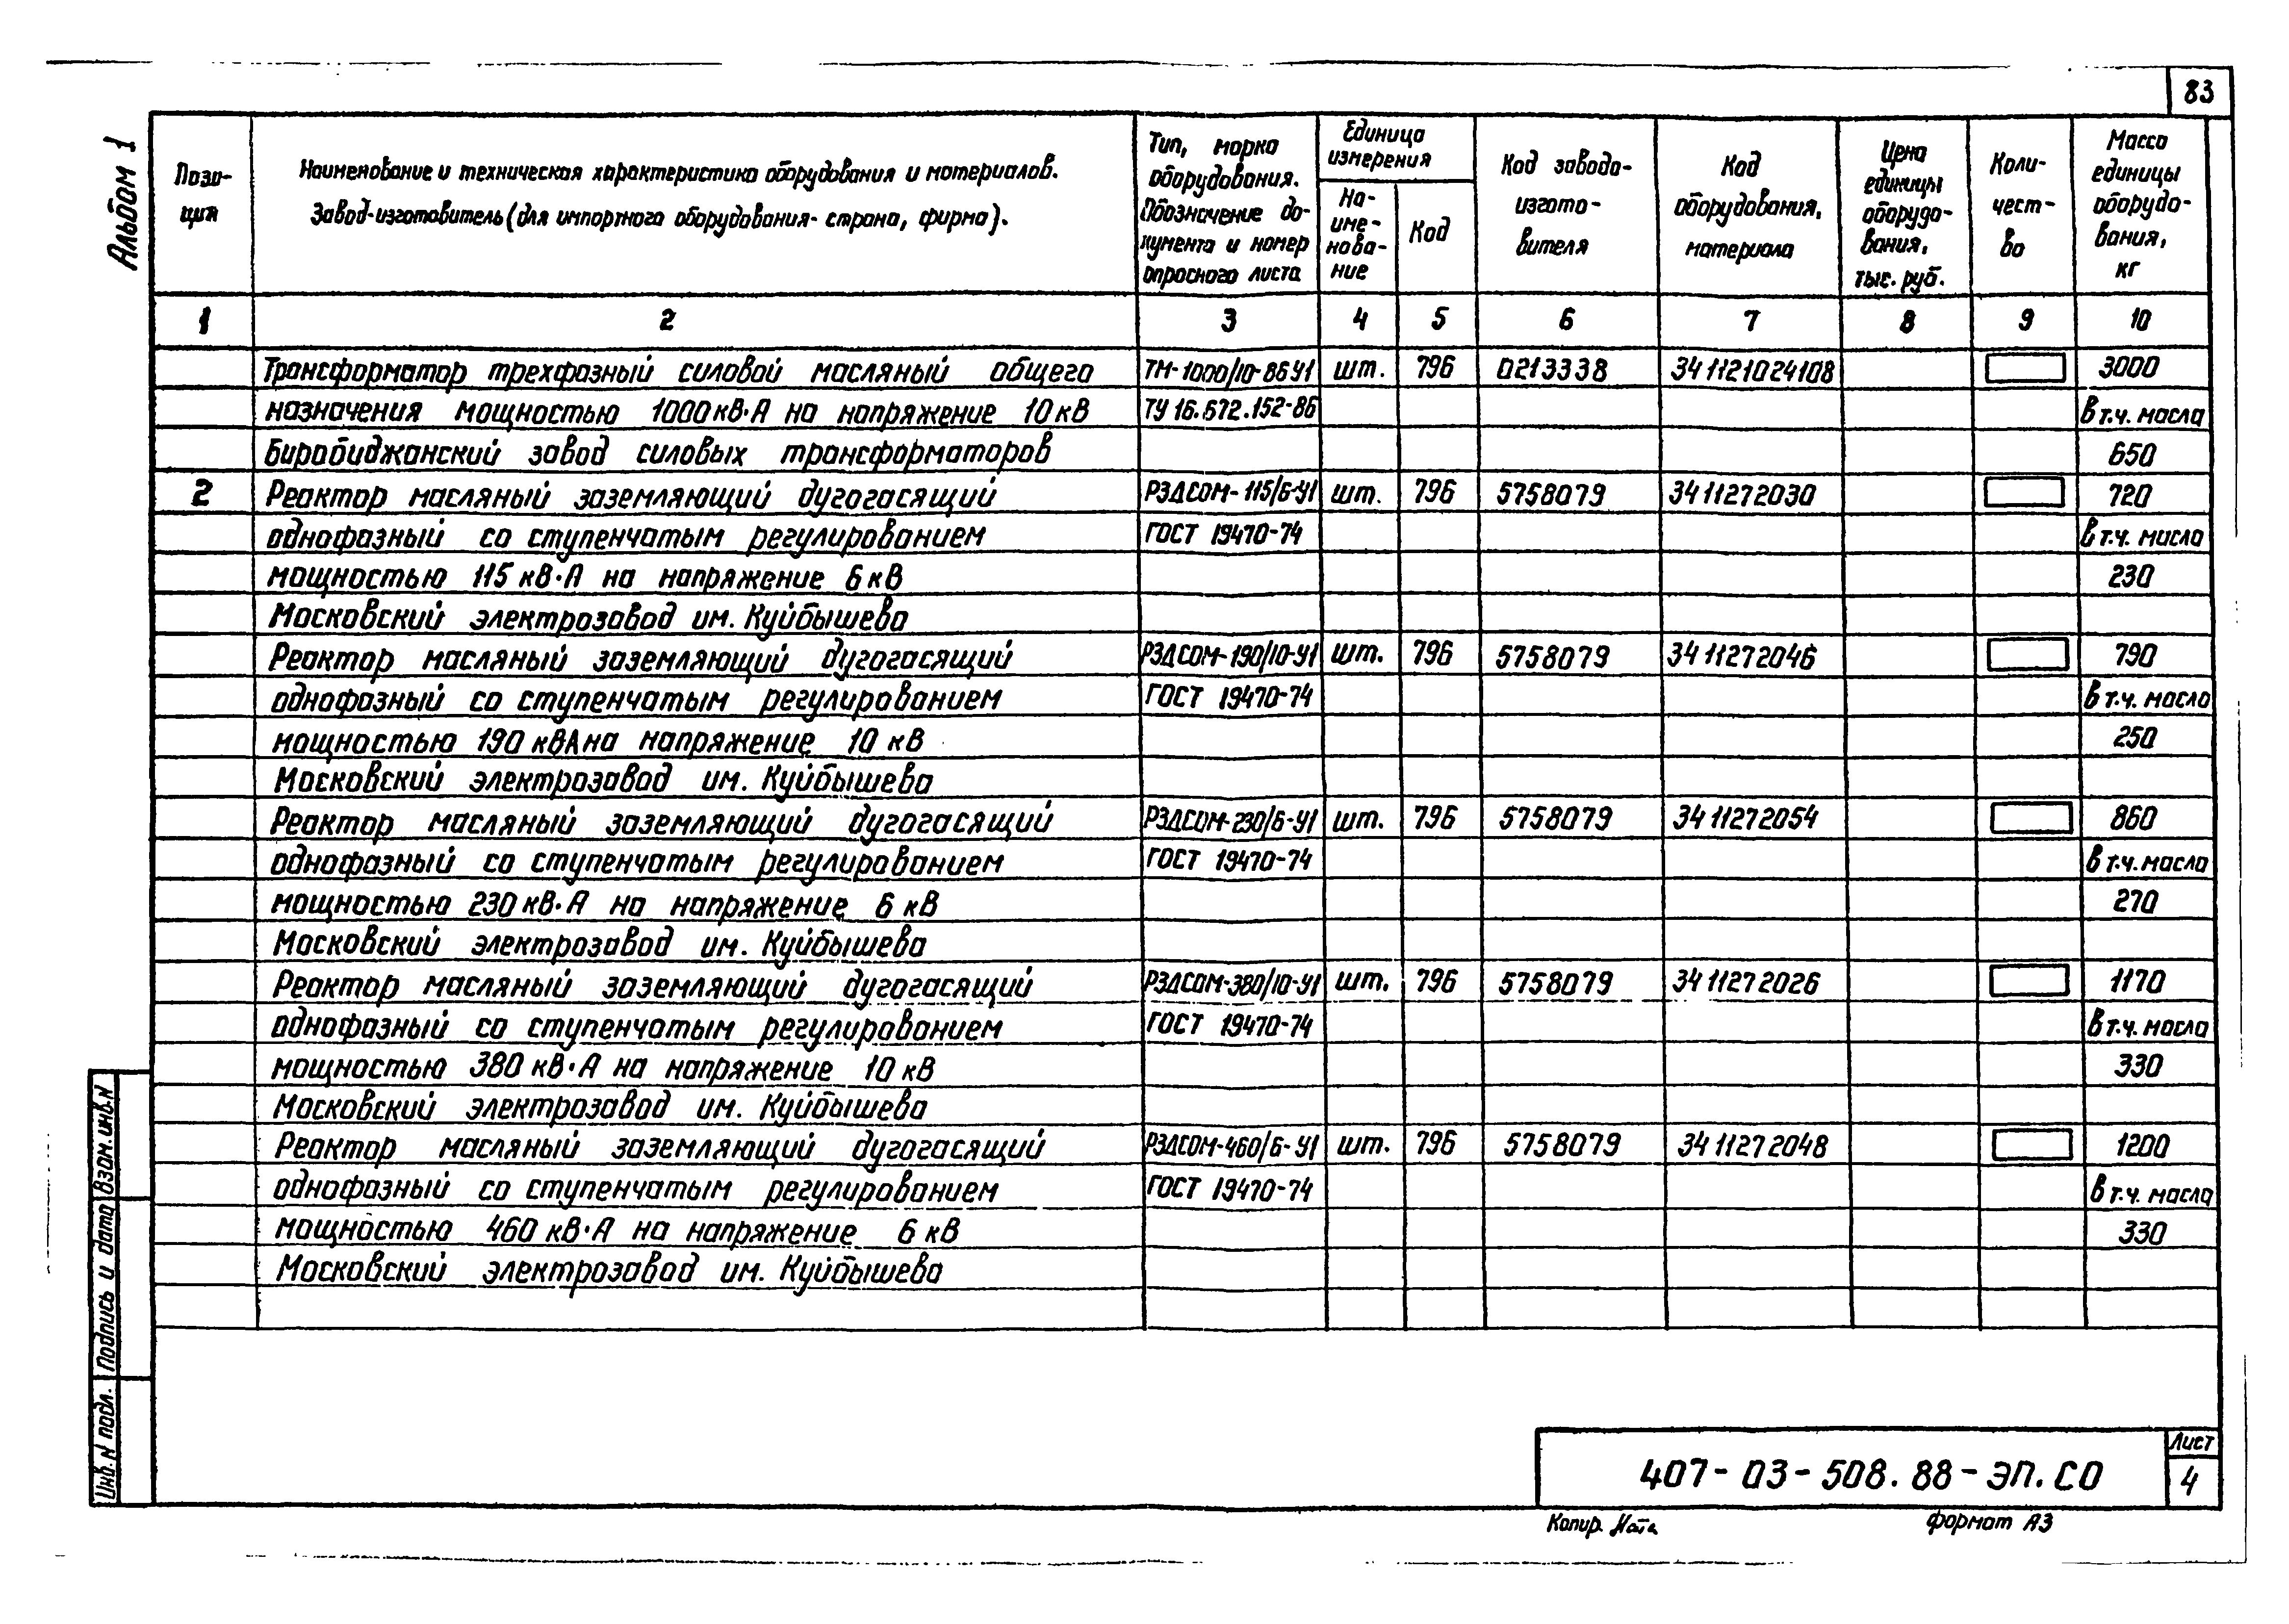 83
Альбом 1
Пози-
ция
Наименование и техническая характеристика оборудования и материалов.
Завод-изготовитель (для импортного оборудования - страна, фирма).
Тип, марка
оборудования.
Обозначение до-
кумента и номер
опросного листа
Единица
измерения
На-
име-
нова-
ние
Код
Код завода-
изгото-
вителя
Код
оборудования,
материала
Цена
единицы
оборудо-
вания,
тыс. руб.
Коли-
чест-
во
Масса
единицы
оборудо-
вания,
кг
1 2 3 4 5 6 7 8 9 10
Трансформатор трехфазный силовой масляный общего ТМ-1000/10-86У1 шт. 796 0213338 34 1121024108 3000
назначения мощностью 1000 кВ·А на напряжение 10 кВ ТУ 16.672.152-86 в т.ч. масла
Биробиджанский завод силовых трансформаторов 650
2 Реактор масляный заземляющий дугогасящий РЗДСОМ-115/6-У1 шт. 796 5758079 34 11272030 720
однофазный со ступенчатым регулированием ГОСТ 19470-74 в т.ч. масла
мощностью 115 кВ·А на напряжение 6 кВ 230
Московский электрозавод им. Куйбышева
Реактор масляный заземляющий дугогасящий РЗДСОМ-190/10-У1 шт. 796 5758079 34 11272046 790
однофазный со ступенчатым регулированием ГОСТ 19470-74 в т.ч. масла
мощностью 190 кВА на напряжение 10 кВ 250
Московский электрозавод им. Куйбышева
Реактор масляный заземляющий дугогасящий РЗДСОМ-230/6-У1 шт. 796 5758079 34 11272054 860
однофазный со ступенчатым регулированием ГОСТ 19470-74 в т.ч. масла
мощностью 230 кВ·А на напряжение 6 кВ 270
Московский электрозавод им. Куйбышева
Реактор масляный заземляющий дугогасящий РЗДСОМ-380/10-У1 шт. 796 5758079 34 11272026 1170
однофазный со ступенчатым регулированием ГОСТ 19470-74 в т.ч. масла
мощностью 380 кВ·А на напряжение 10 кВ 330
Московский электрозавод им. Куйбышева
Реактор масляный заземляющий дугогасящий РЗДСОМ-460/6-У1 шт. 796 5758079 34 11272048 1200
однофазный со ступенчатым регулированием ГОСТ 19470-74 в т.ч. масла
мощностью 460 кВ·А на напряжение 6 кВ 330
Московский электрозавод им. Куйбышева
Взам. инв. N
Подпись и дата
Инв. N подл.
407-03-508.88-ЭП.СО
Лист
4
Копир. Ната
формат А3